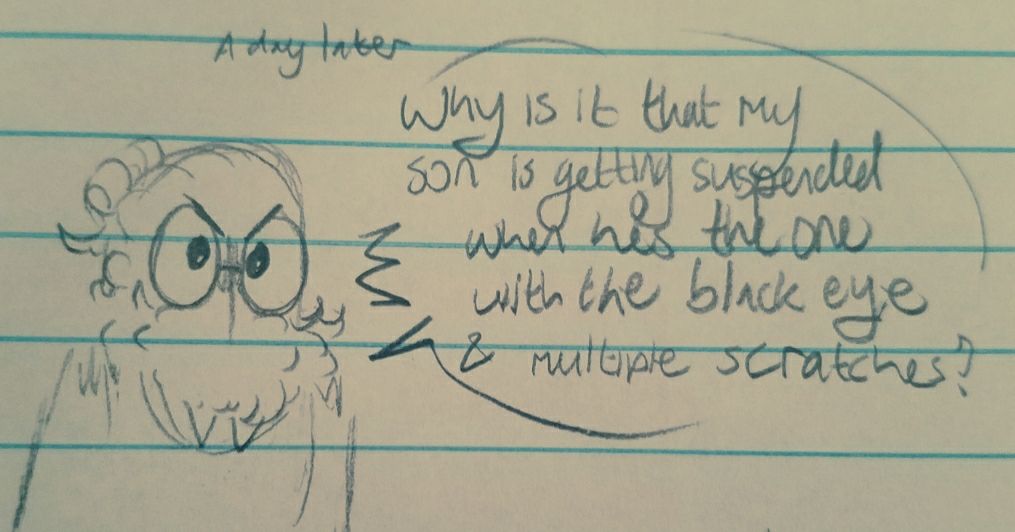 A day later
Why is it that my
son is getting suspended
when hes the one
with the black eye
& multiple scratches?